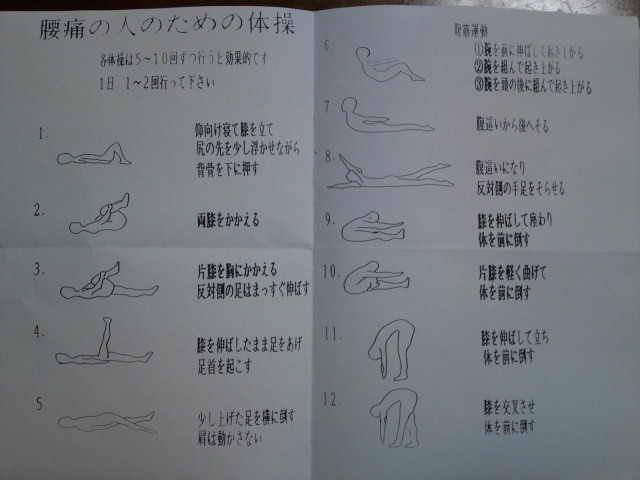 腰痛の人のための体操
各体操は5~10回ずつ行うと効果的です
1日 1~2回行って下さい
1.
仰向け寝て膝を立て
尻の先を少し浮かせながら
背骨を下に押す
2.
両膝をかかえる
3.
片膝を胸にかかえる
反対側の足はまっすぐ伸ばす
4.
膝を伸ばしたまま足をあげ
足首を起こす
5
少し上げた足を横に倒す
肩は動かさない
6.
腹筋運動
①腕を前に伸ばして起き上がる
②腕を組んで起き上がる
③腕を頭の後に組んで起き上がる
7.
腹這いから後へそる
8.
腹這いになり
反対側の手足をそらせる
9.
膝を伸ばして座わり
体を前に倒す
10.
片膝を軽く曲げて
体を前に倒す
11.
膝を伸ばして立ち
体を前に倒す
12.
膝を交叉させ
体を前に倒す